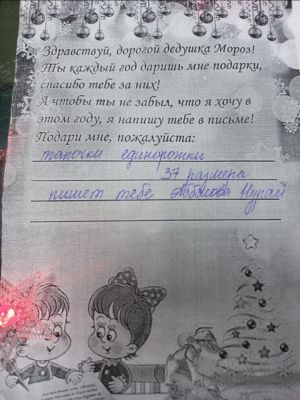 Здравствуй, дорогой дедушка Мороз!
Ты каждый год даришь мне подарки,
спасибо тебе за них!
А чтобы ты не забыл, что я хочу в
этом году, я напишу тебе в письме!
Подари мне, пожалуйста:
тапочки единорожки
37 размера
пишет тебе Нурай